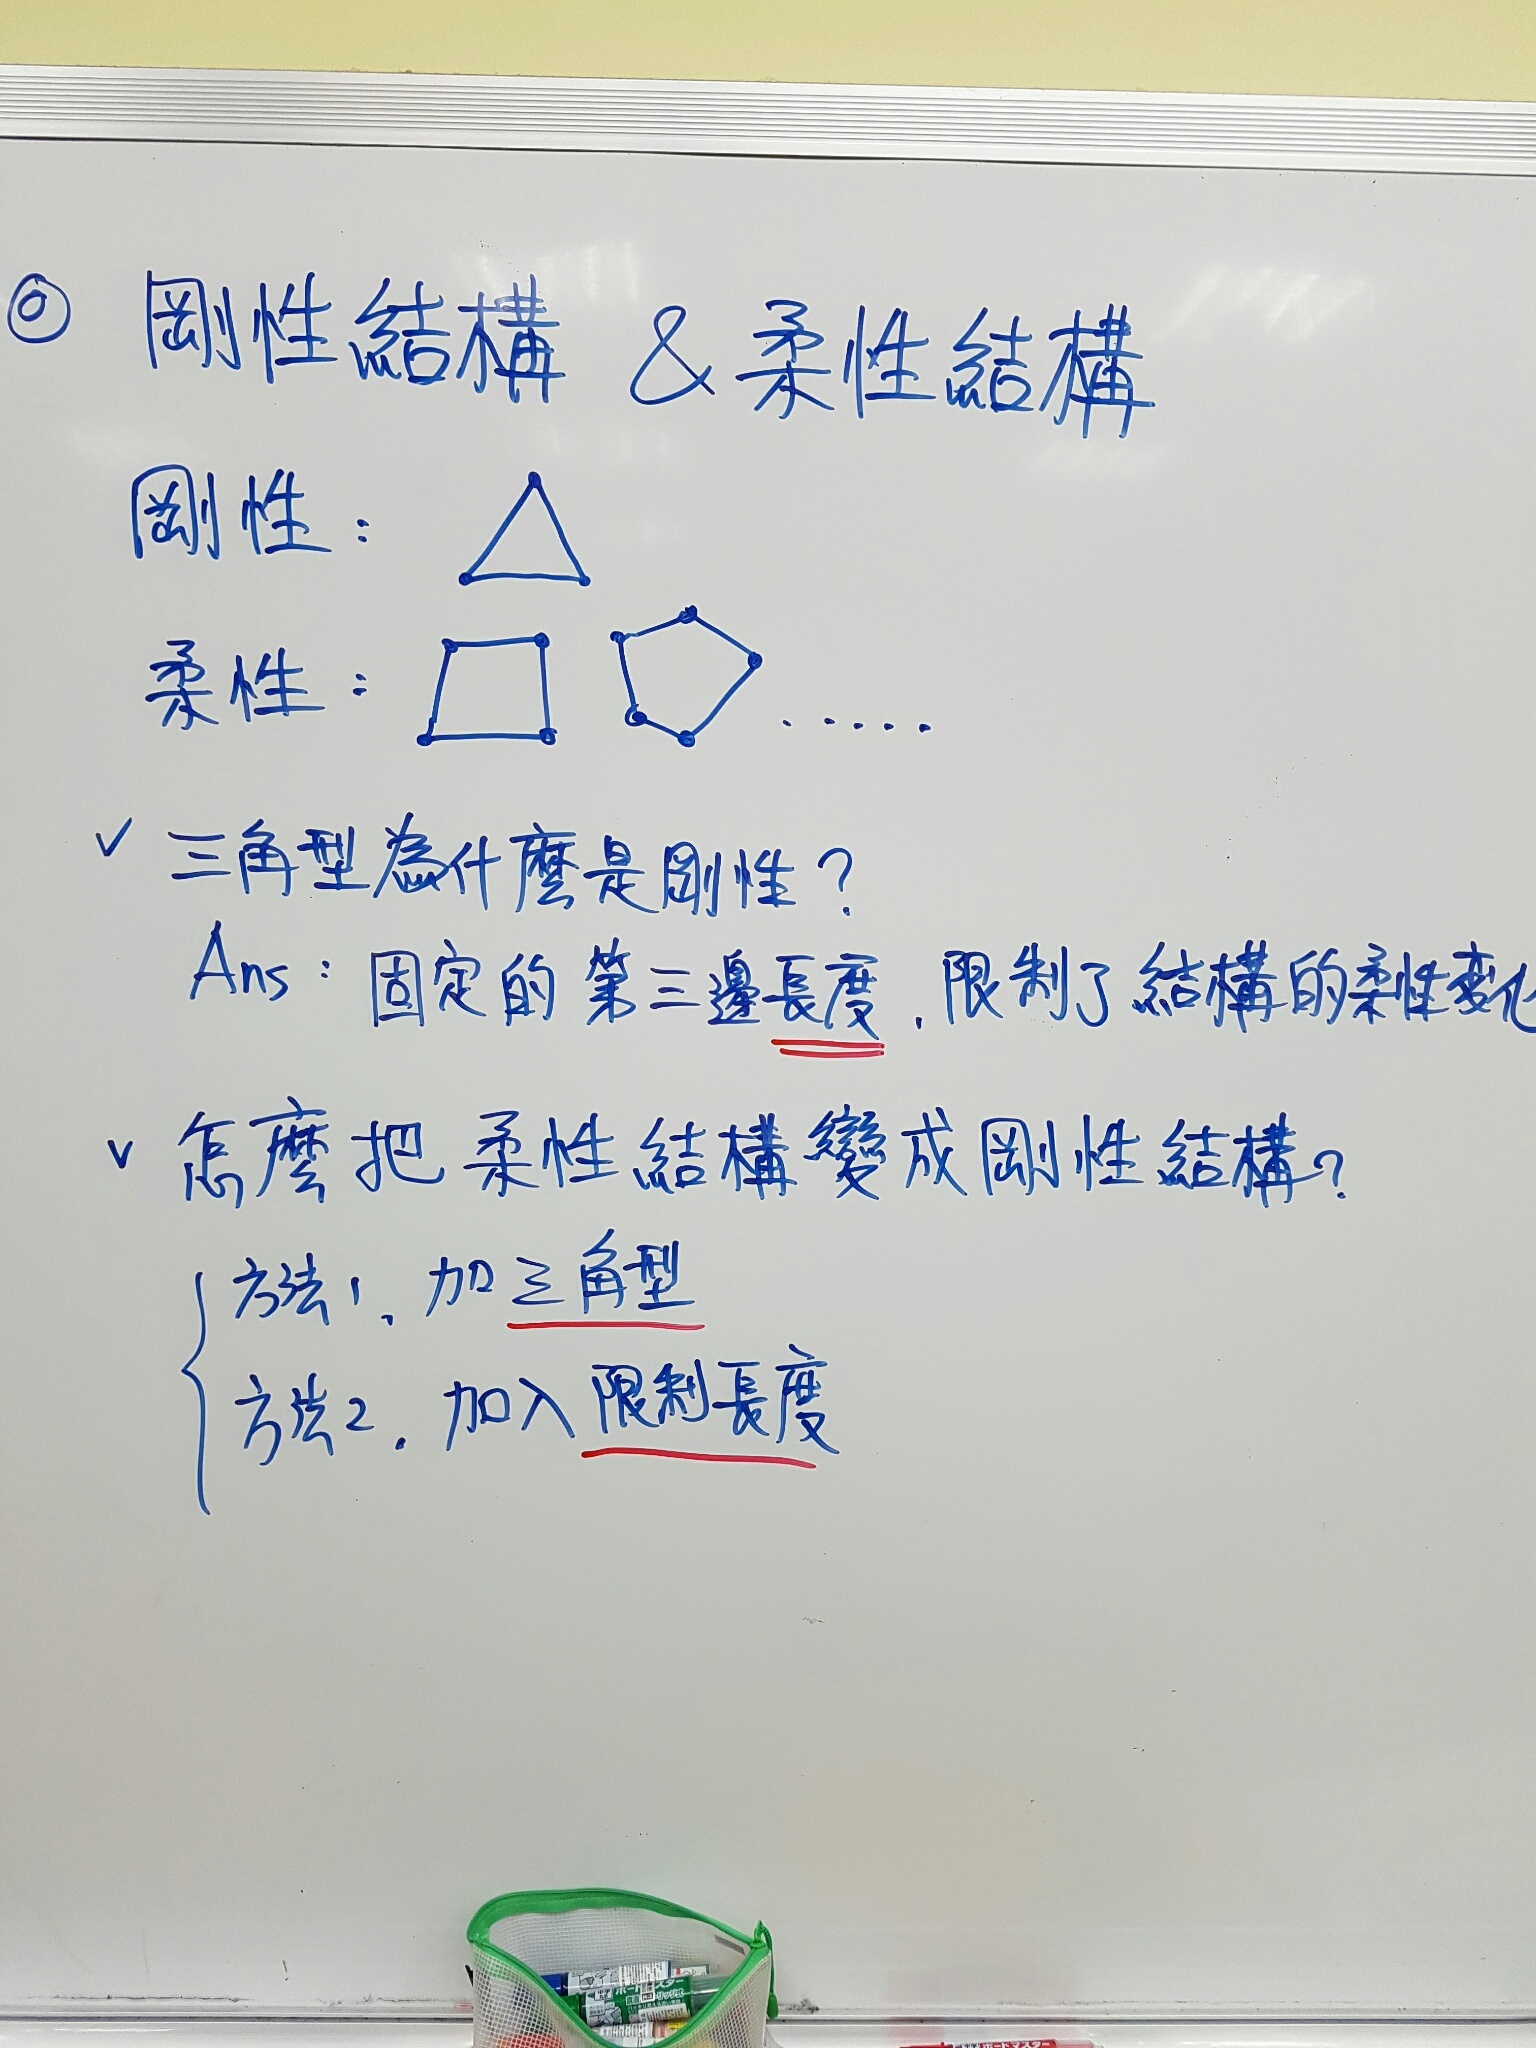 ◎ 剛性結構 & 柔性結構
剛性：
柔性： .....
✓ 三角型為什麼是剛性?
Ans：固定的第三邊長度，限制了結構的柔性変化
✓ 怎麼把柔性結構變成剛性結構?
方法1、加三角型
方法2、加入限制長度
ボードマスター
ボードマスター